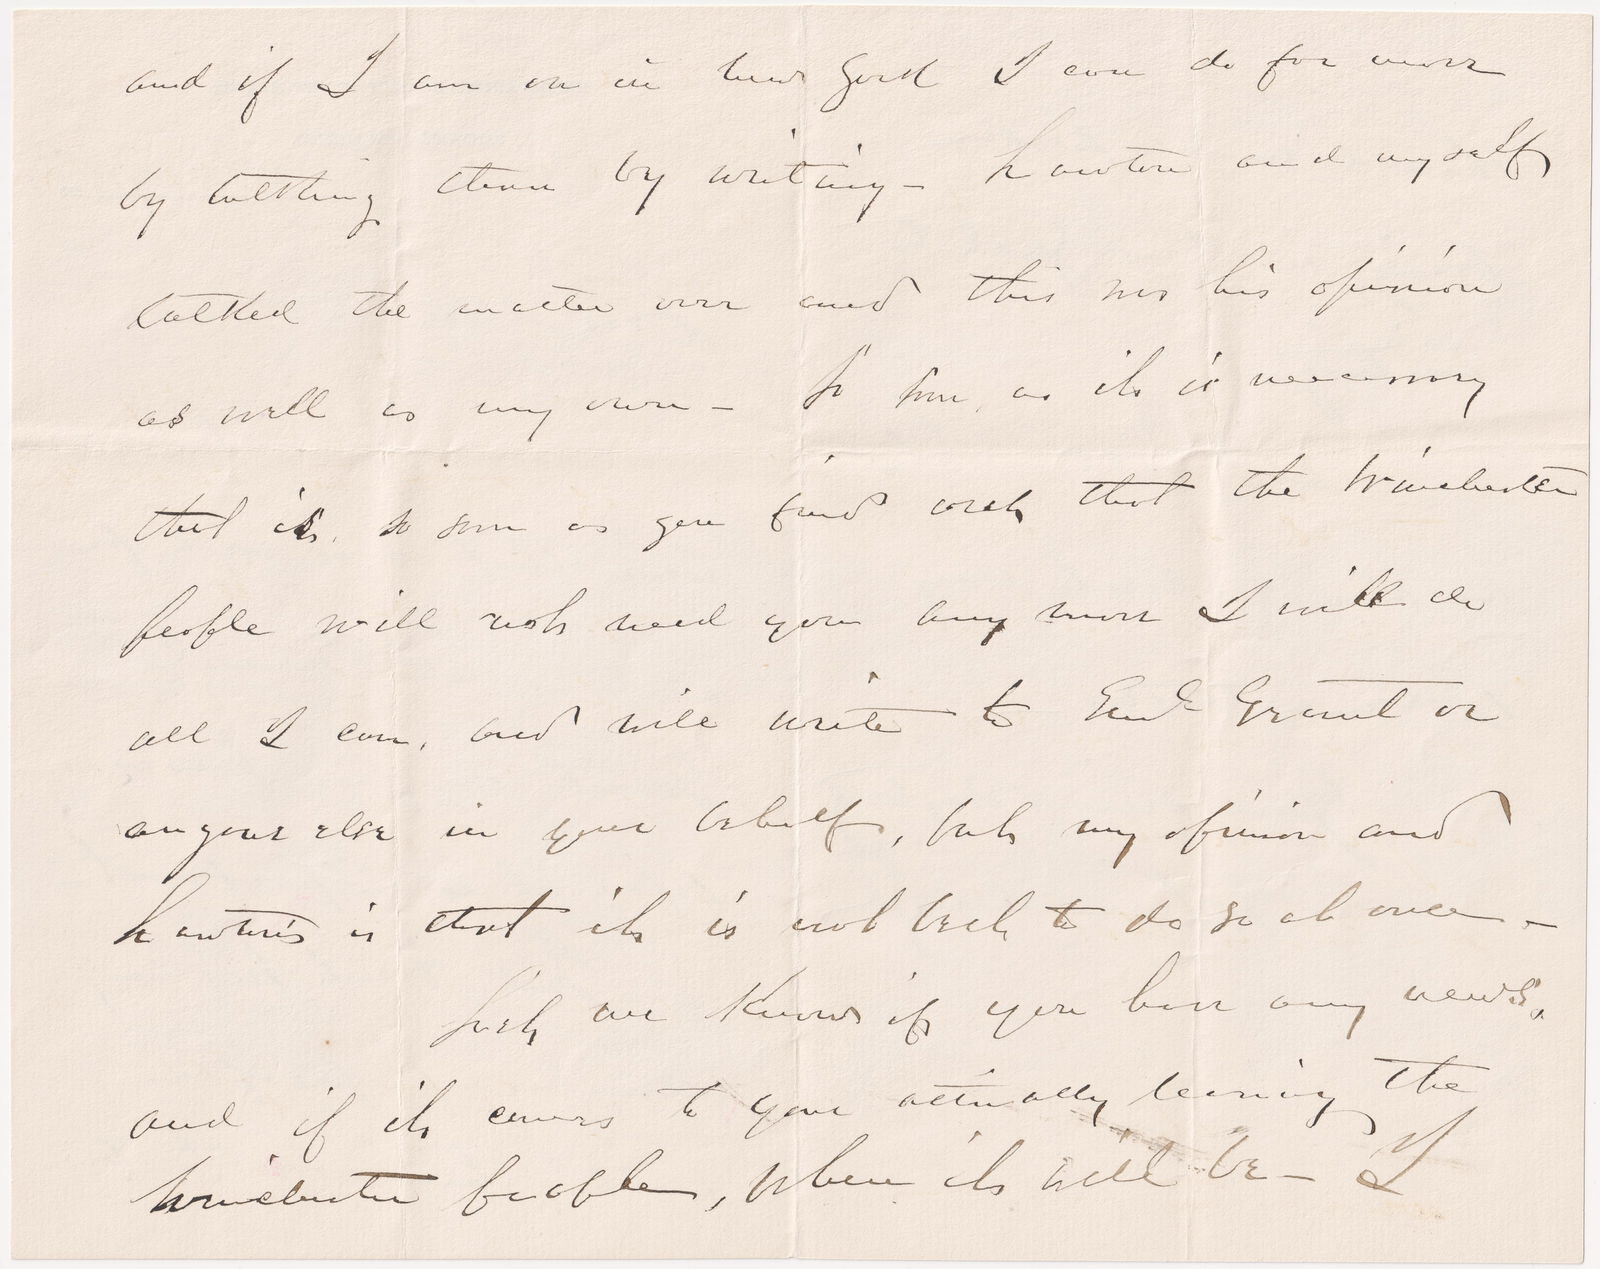 and if I am on in New York I can do far more
by talking than by writing — Lawton and myself
talked the matter over and this was his opinion
as well as my own — So soon as it is necessary
that is, so soon as you find out that the Winchester
people will not need you any more I will do
all I can, and will write to Genl Grant or
anyone else in your behalf, but my opinion and
Lawton's is that it is not best to do so at once —
Let me know if you have any news,
and if it comes to your actually leaving the
Winchester people, when it will be — I